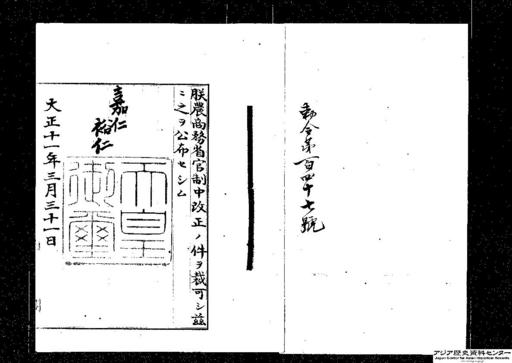 勅令第百四十七號
朕農商務省官制中改正ノ件ヲ裁可シ茲
ニ之ヲ公布セシム
嘉仁
裕仁
天皇御璽
大正十一年三月三十一日
アジア歴史資料センター
Japan Center for Asian Historical Records